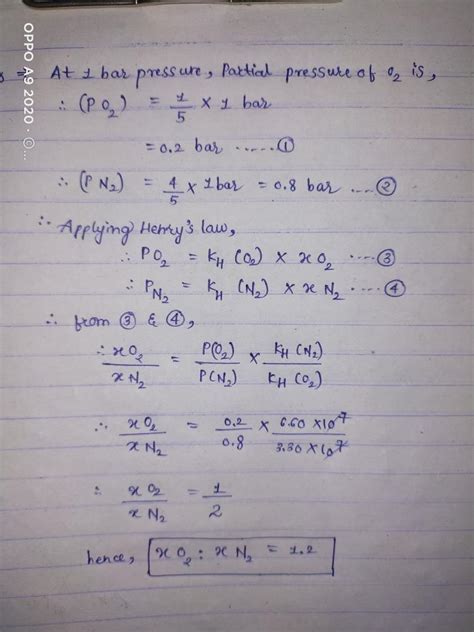 ⇒ At 1 bar pressure, Partial pressure of O2 is,
∴ (P O2) = 1/5 × 1 bar
= 0.2 bar ..... ①
∴ (P N2) = 4/5 × 1 bar = 0.8 bar .... ②
∵ Applying Henry's law,
∴ PO2 = KH (O2) × x O2 .... ③
∴ PN2 = KH (N2) × x N2 .... ④
∴ from ③ & ④,
∴ xO2/xN2 = P(O2)/P(N2) × KH (N2)/KH (O2)
∴ xO2/xN2 = 0.2/0.8 × 6.60 × 10^7/3.30 × 10^7
∴ xO2/xN2 = 1/2
hence, xO2 : xN2 = 1.2
OPPO A9 2020 · ©...